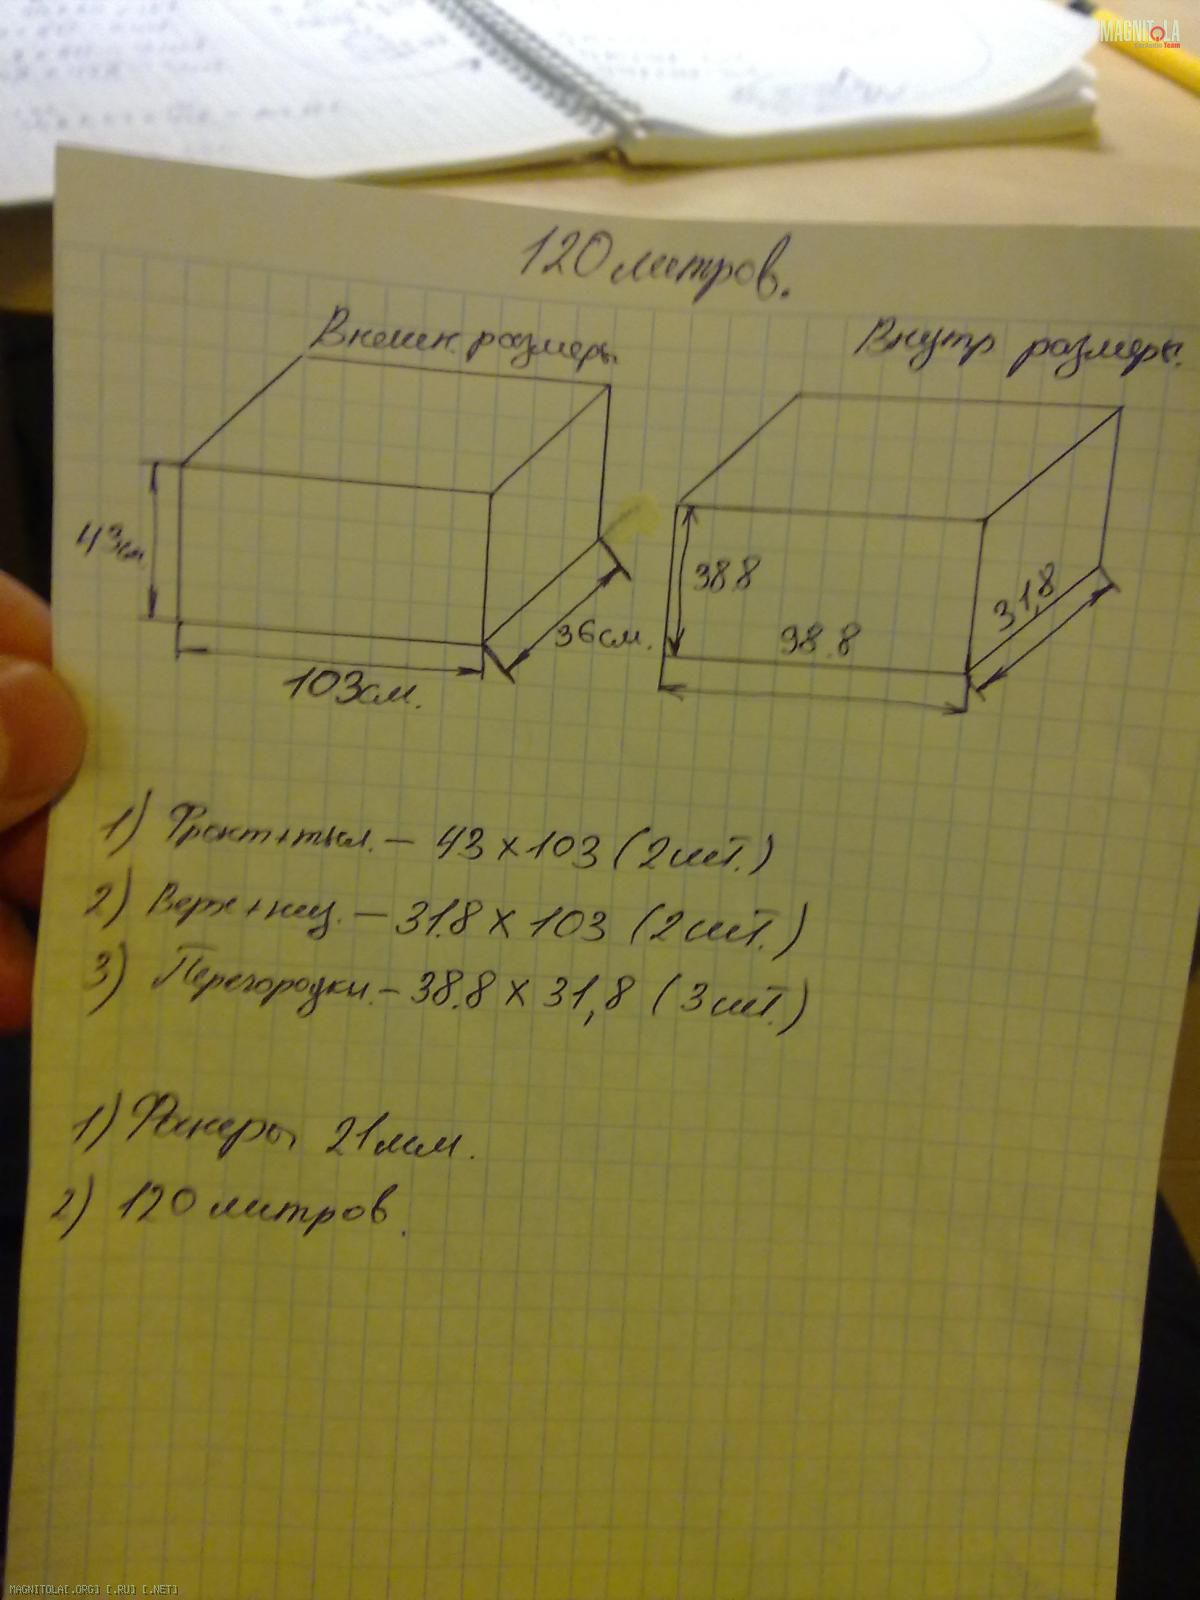 MAGNITOLA
CarAudio Team
120 литров.
Внешн. размеры
Внутр размеры.
43см.
103см.
36см.
38.8
98.8
31,8
1) Фронт+тыл. – 43 х 103 (2шт.)
2) Верх+низ. – 31.8 х 103 (2шт.)
3) Перегородки. – 38.8 х 31,8 (3шт.)
1) Фанеры 21мм.
2) 120 литров.
MAGNITOLA[.ORG] [.RU] [.NET]